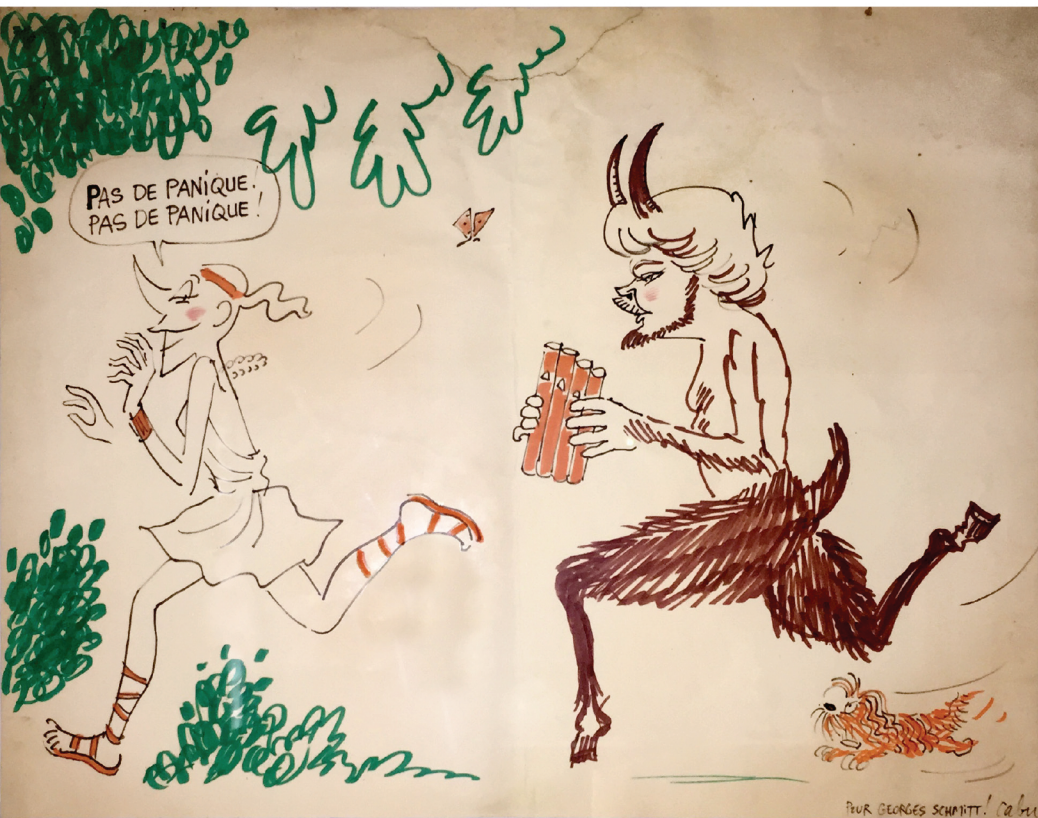 PAS DE PANIQUE!
PAS DE PANIQUE!
POUR GEORGES SCHMITT! Cabu